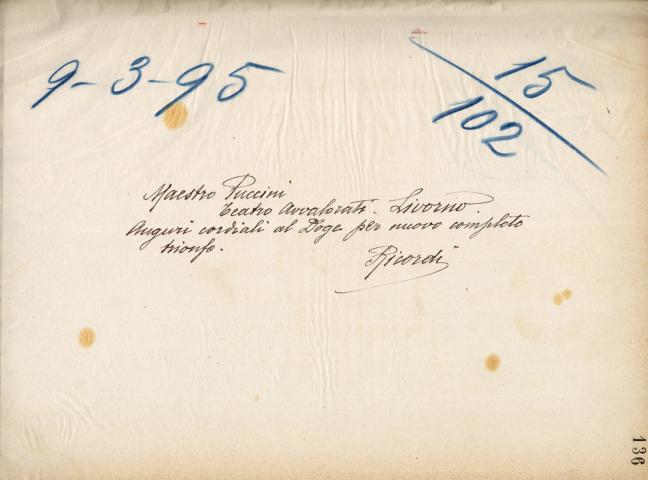 9-3-95
15
102
Maestro Puccini
Teatro Avvalorati. Livorno.
Auguri cordiali al Doge per nuovo completo
trionfo.
Ricordi
136